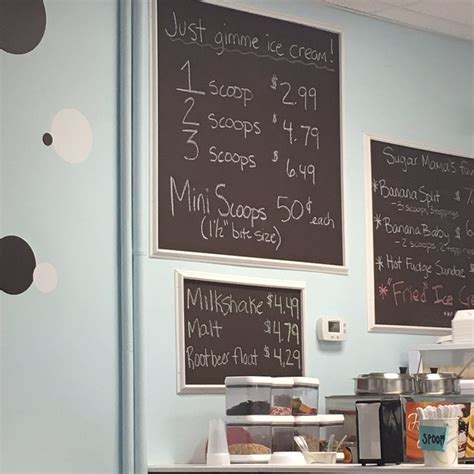 Just gimme ice cream!
1 scoop $2.99
2 scoops $4.79
3 scoops $6.49
Mini Scoops 50¢ each
(1½" bite size)
Milkshake $4.49
Malt $4.79
Rootbeer float $4.29
Sugar Mama's
*Banana Split $
-3 scoops, 3 toppings
*Banana Babu
-2 scoops, 2 toppings
*Hot Fudge Sundae
*"Fried" Ice
SPOON